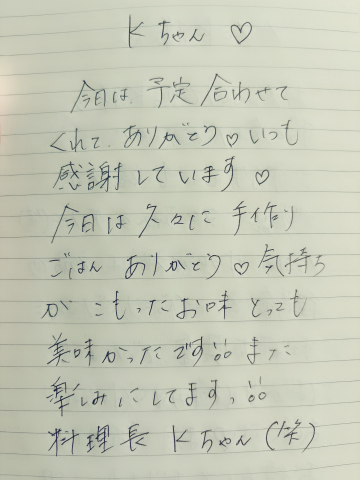 Kちゃん♡
今日は、予定合わせて
くれて、ありがとう♡いつも
感謝しています♡
今日は久々に手作り
ごはんありがとう♡気持ち
がこもったお味とっても
美味かったです!!また
楽しみにしてますっ!!
料理長 Kちゃん(笑)